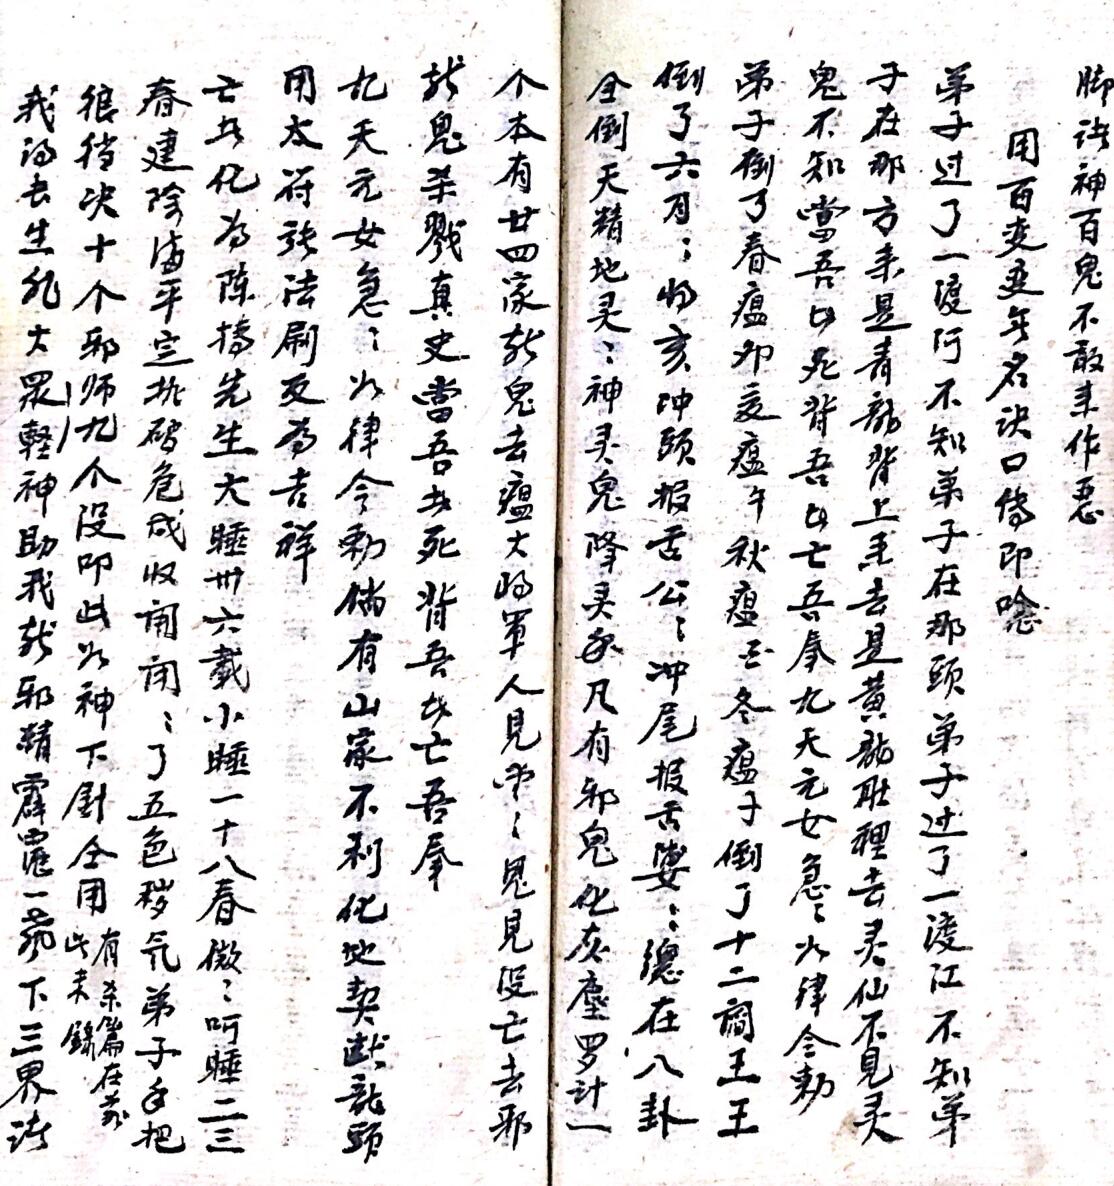 脚踏神百鬼不敢来作恶
用百变变年名诀口传即唸
弟子过了一渡河不知弟子在那头弟子过了一渡江不知弟
子在那方来是青龙背上来去是黄龙肚裡去灵仙不見灵
鬼不知當吾者死背吾者亡吾奉九天元女急〻如律令勅
弟子倒了春瘟卯夏瘟午秋瘟冬瘟子倒了十二個王王
倒了六丑〻将亥冲頭报舌公〻冲尾报舌婆〻總在八卦
全倒天精地灵〻神灵鬼降灵凡有邪鬼化灰塵罗计一
个本有廿四家斬鬼去瘟大将軍人見〻鬼見没亡去邪
斬鬼杀戮真史當吾者死背吾者亡吾奉
九天元女急〻如律令勅倘有山家不利化地契献龍頭
用太符張法刷反為吉祥
亡者化為陈摶先生大睡卅六載小睡一十八春微〻呵睡二三
春建除满平定执破危成收開闭〻了五色穢气弟子手把
很掐决十个邪师九个没即此如神下尉全用有杀篇在前此未錄
我得去生死大眾軽神助我斬邪精霹靂一声下三界